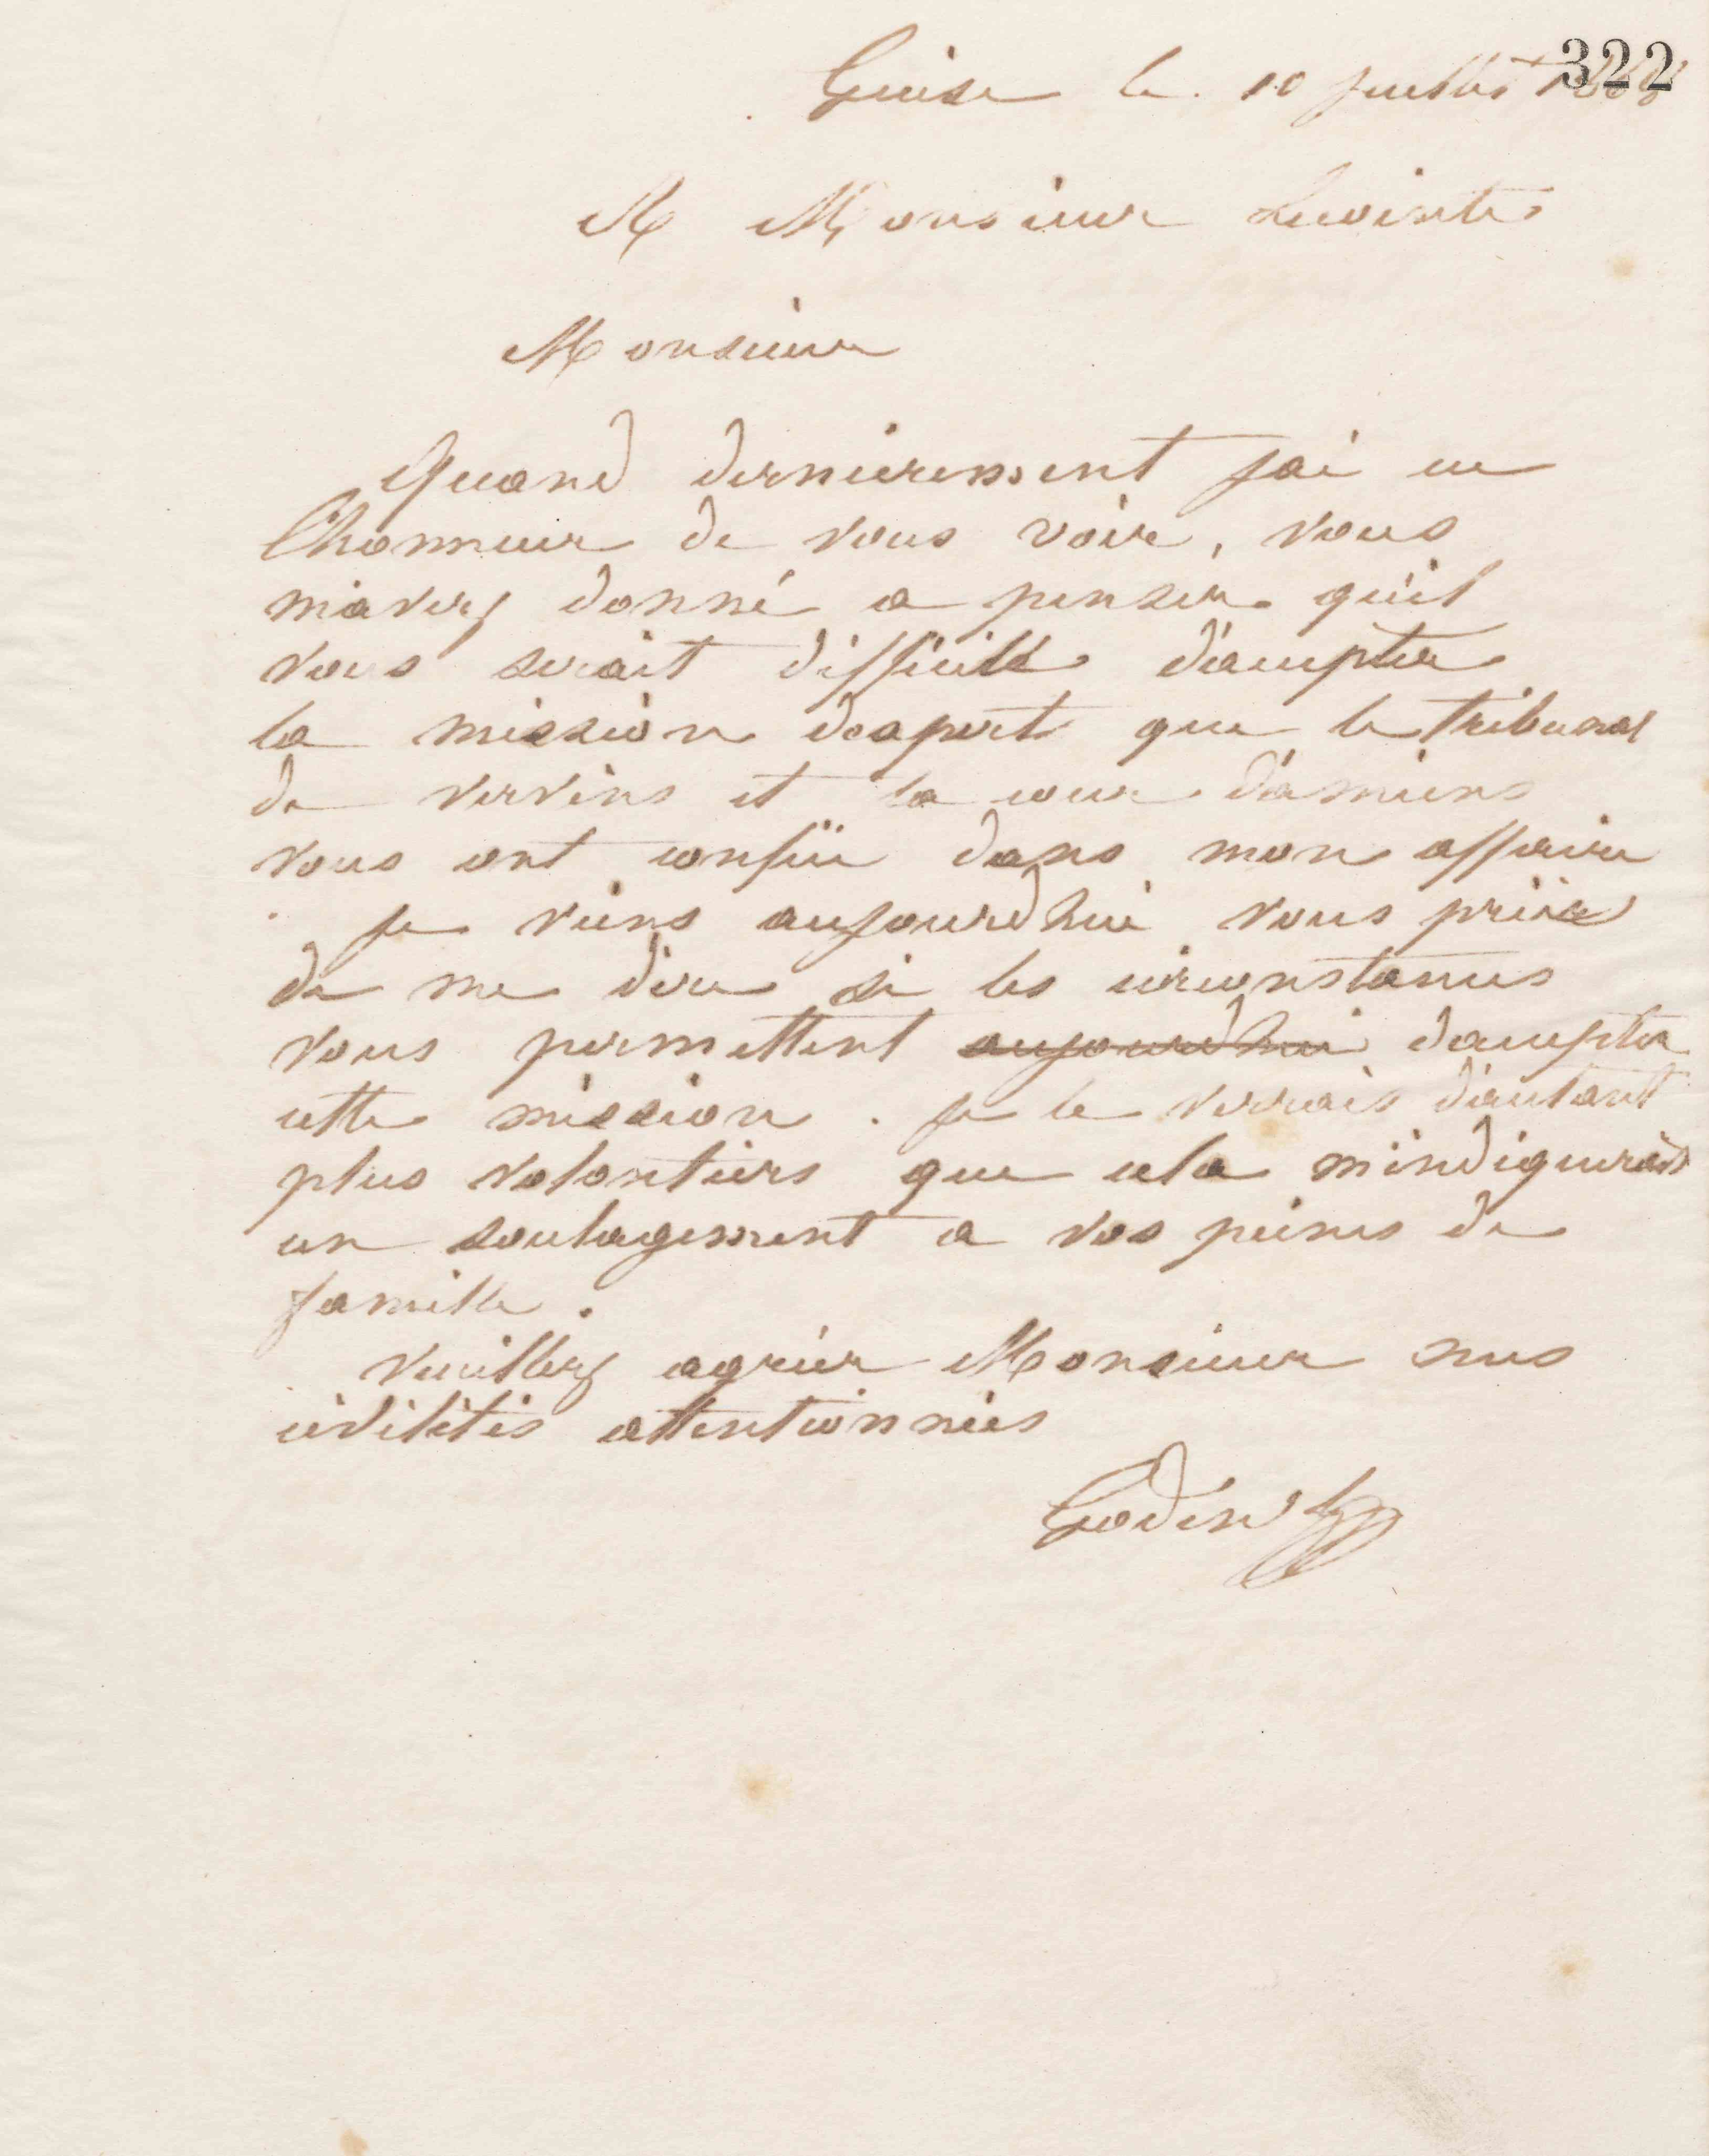 322
Guise le 10 Juillet
A Monsieur Lecointe
Monsieur
Quand dernierement jai eu
lhonneur de vous voir, vous
mavez donné a penser qu'il
vous serait difficille d'accepter
la mission dexpert que le tribunal
de vervins et la cour d'amiens
vous ont confiée dans mon affaire
je viens aujourdhui vous prier
de me dire si les circonstances
vous permettent aujourdhui daccepter
cette mission. je le verrais d'autant
plus volontiers que cela m'indiquerait
un soulagement a vos peines de
famille.
veuillez agréer Monsieur mes
civilités attentionnées
Godin